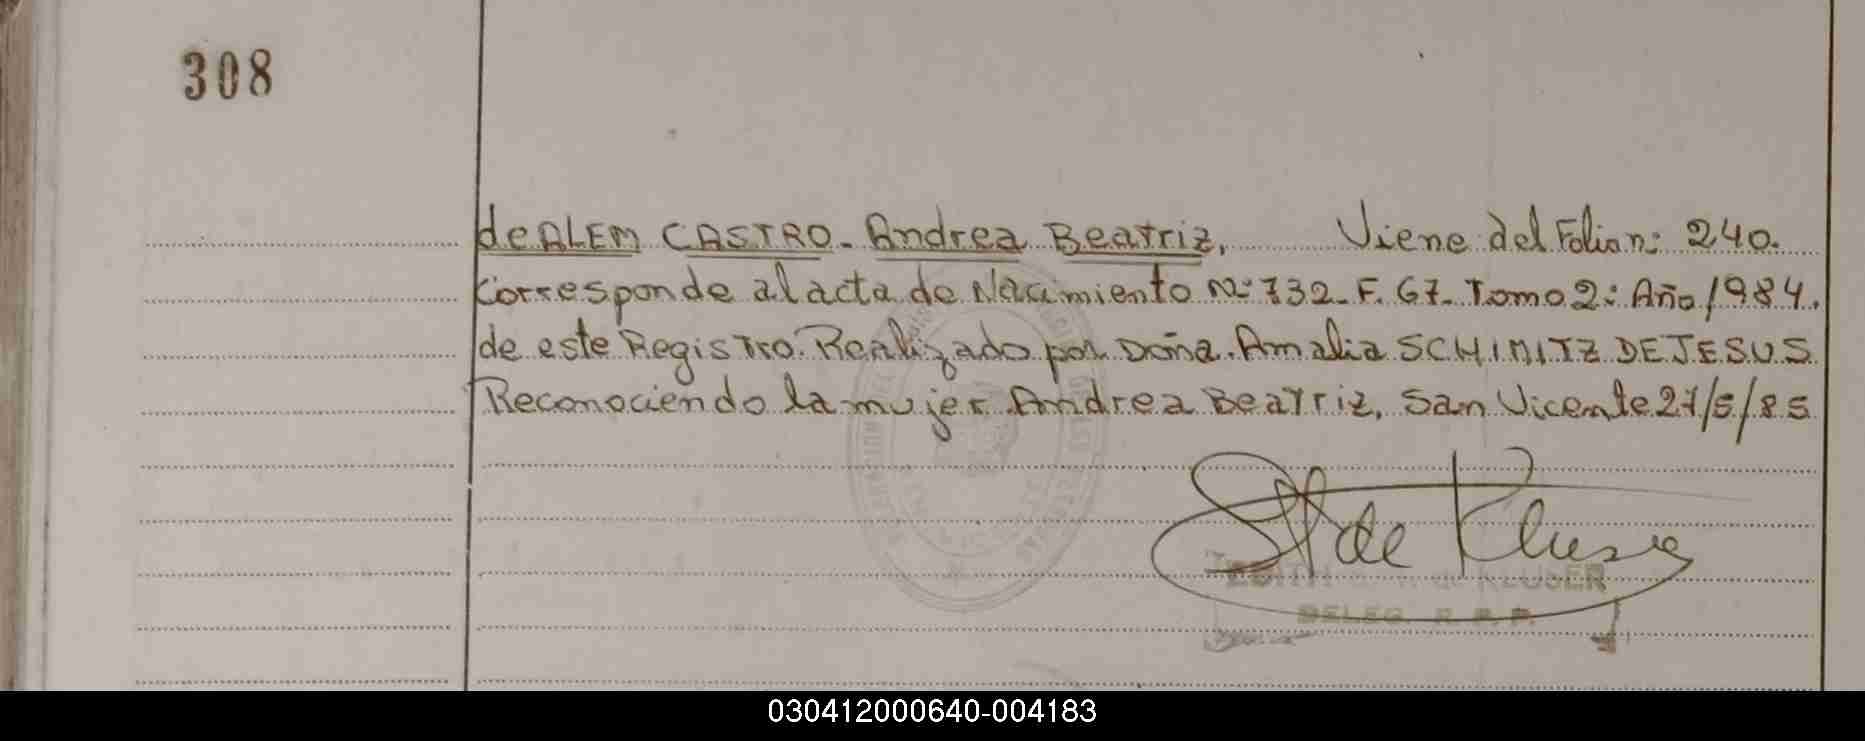 308
de ALEM CASTRO. Andrea Beatriz, Viene del Folio n: 240.
Corresponde al acta de Nacimiento Nº 732. F. 67. Tomo 2: Año 1984.
de este Registro. Realizado por Doña. Amalia SCHIMITZ DE JESUS
Reconociendo la mujer Andrea Beatriz, San Vicente 27/5/85
EDITH de KLUSER
DELEG. R. P.
030412000640-004183